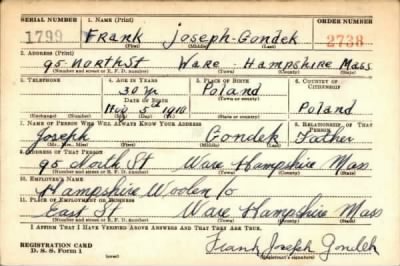 SERIAL NUMBER 1. NAME (Print) ORDER NUMBER
1799 FRANK Joseph-Gondek 2738
(First) (Middle) (Last)
2. ADDRESS (Print)
95-North St Ware-Hampshire Mass
(Number and street or R. F. D. number) (Town) (County) (State)
3. TELEPHONE 4. AGE IN YEARS 5. PLACE OF BIRTH 6. COUNTRY OF CITIZENSHIP
30 yr Poland
DATE OF BIRTH (Town or county)
Nov 5th 1910 Poland
(Exchange) (No.) (Mo.) (Day) (Yr.) (State or country)
7. NAME OF PERSON WHO WILL ALWAYS KNOW YOUR ADDRESS 8. RELATIONSHIP OF THAT PERSON
Joseph Gondek Father
(Mr., Mrs., Miss) (First) (Middle) (Last)
9. ADDRESS OF THAT PERSON
95 North St Ware Hampshire Mass
(Number and street or R. F. D. number) (Town) (County) (State)
10. EMPLOYER'S NAME
Hampshire Woolen Co
11. PLACE OF EMPLOYMENT OR BUSINESS
East St Ware Hampshire Mass
(Number and street or R. F. D. number) (Town) (County) (State)
I AFFIRM THAT I HAVE VERIFIED ABOVE ANSWERS AND THAT THEY ARE TRUE.
REGISTRATION CARD
D. S. S. Form 1 (over) Frank Joseph Gondek
(Registrant's signature)